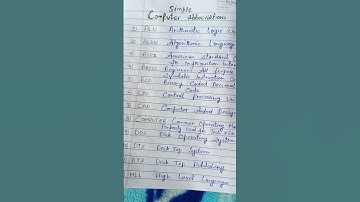 Simple
Computer Abbreviations
ALU Arithmetic Logic
Algorithmic Language
American Standard
for Information Inter
BASIC Beginner All Purpose
Symbolic Instruction
BCD Binary Coded Decimal
Code
CPU Central Processing
CAD Computer Aided Design
COMPUTER Common Operating
Properly Used for
DOS Disk Operating System
DTS Desk Top System
DTP Desk Top Publishing
HLL High Level Language